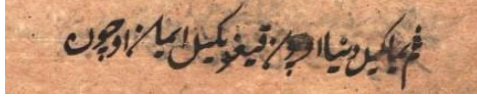 غم یماکیل دنیا اوچون قیغو یکیل ایمان اوچون